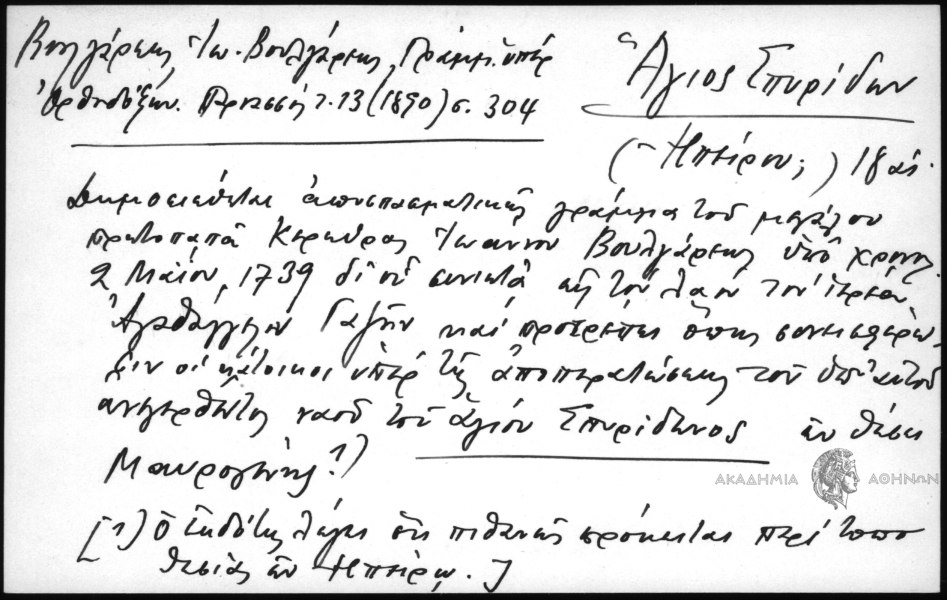 Βουλγάρεως Ἰω. Βουλγάρεως, Γράμμ. ὑπέρ
Ὀρθοδόξων. Παρνασσός τ. 13 (1890) σ. 304
Ἅγιος Σπυρίδων
(Ἠπείρου;) 18 αἰ.
Δημοσιεύεται ἀποσπασματικῶς γράμμα τοῦ μεγάλου
πρωτοπαπᾶ Κερκύρας Ἰωάννου Βουλγάρεως ὑπὸ χρον.
2 Μαΐου, 1739 δι' οὗ συνιστᾶ εἰς τὸν λαὸν τὸν ἱερέα
Ἀγαθάγγελον Γαζῆν καὶ προτρέπει ὅπως συνεισφέρω-
σιν οἱ κάτοικοι ὑπὲρ τῆς ἀποπερατώσεως τοῦ ὑπ' αὐτοῦ
ἀνεγερθέντος ναοῦ τοῦ ἁγίου Σπυρίδωνος ἐν θέσει
Μαυρογένης. 1)
[1) Ὁ ἐκδότης λέγει ὅτι πιθανῶς πρόκειται περὶ τοπο
θεσίας ἐν Ἠπείρῳ.]
ΑΚΑΔΗΜΙΑ ΑΘΗΝΩΝ